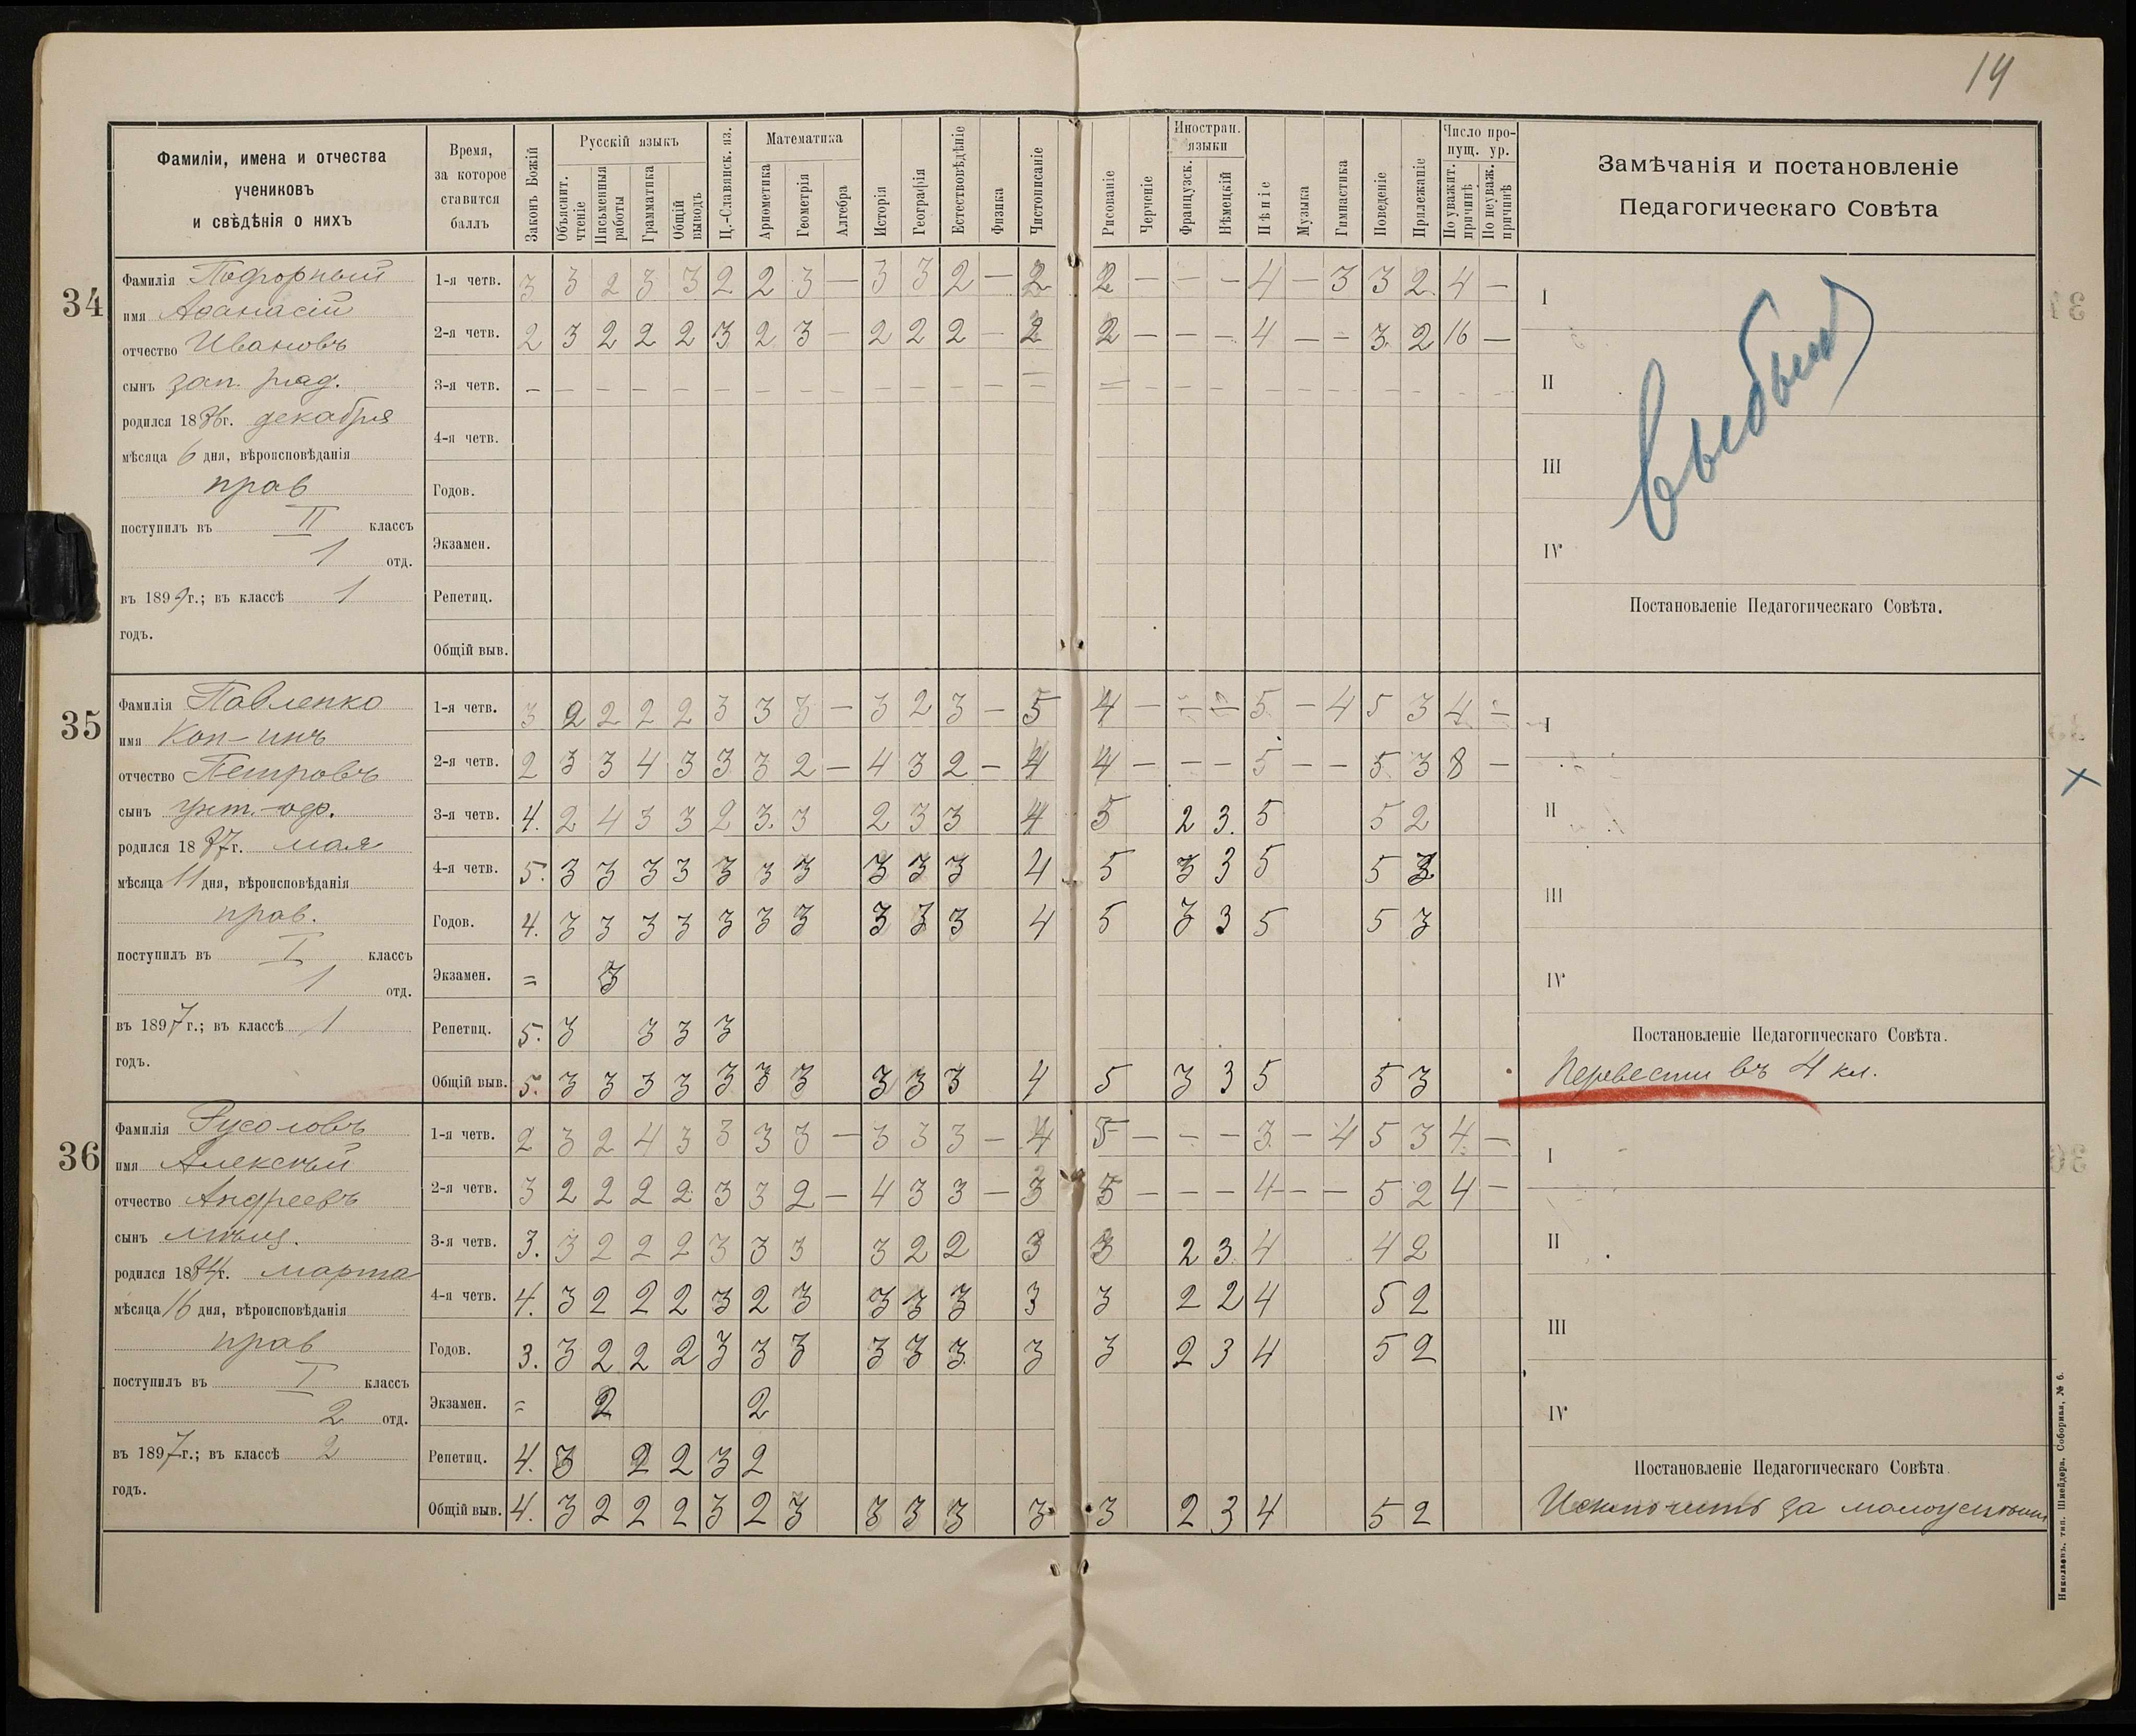 14
Фамиліи, имена и отчества
учениковъ
и свѣдѣнія о нихъ
Время,
за которое
ставится
баллъ
Законъ Божій
Русскій языкъ
Объяснит. чтеніе
Письменныя работы
Грамматика
Общій выводъ
Ц.-Славянск. яз.
Математика
Арифметика
Геометрія
Алгебра
Исторія
Географія
Естествовѣдѣніе
Физика
Чистописаніе
Рисованіе
Черченіе
Иностран. языки
Французск.
Нѣмецкій
Пѣніе
Музыка
Гимнастика
Поведеніе
Прилежаніе
Число пропущ. ур.
По уважит. причинѣ
По неуваж. причинѣ
Замѣчанія и постановленіе
Педагогическаго Совѣта
34
Фамилія
имя Афанасій
отчество Ивановъ
сынъ зап. ряд.
родился 1886г. декабря
мѣсяца 6 дня, вѣроисповѣданія
прав
поступилъ въ II классъ
1 отд.
въ 1899г.; въ классѣ 1
годъ.
1-я четв. 3 3 2 3 3 2 2 3 — 3 3 2 — 2 2 — — — 4 — 3 3 2 4 —
2-я четв. 2 3 2 2 2 3 2 3 — 2 2 2 — 2 2 — — — 4 — — 3 2 16 —
3-я четв. — — — — — — — — — — — — — — — — — — — — — — — — —
4-я четв.
Годов.
Экзамен.
Репетиц.
Общій выв.
I
II
III
IV
выбылъ
Постановленіе Педагогическаго Совѣта.
35
Фамилія Павленко
имя Кон-инъ
отчество Петровъ
сынъ унт.-оф.
родился 1887г. мая
мѣсяца 11 дня, вѣроисповѣданія
прав.
поступилъ въ I классъ
1 отд.
въ 1897г.; въ классѣ 1
годъ.
1-я четв. 3 2 2 2 2 3 3 3 — 3 2 3 — 5 4 — — — 5 — 4 5 3 4 —
2-я четв. 2 3 3 4 3 3 3 2 — 4 3 2 — 4 4 — — — 5 — — 5 3 8 —
3-я четв. 4. 2 4 3 3 2 3. 3 2 3 3 4 5 2 3. 5 5 2
4-я четв. 5. 3 3 3 3 3 3 3 3 3 3 4 5 3 3 5 5 3
Годов. 4. 3 3 3 3 3 3 3 3 3 3 4 5 3 3 5 5 3
Экзамен. = 3
Репетиц. 5. 3 3 3 3
Общій выв. 5. 3 3 3 3 3 3 3 3 3 3 4 5 3 3 5 5 3
I
II
III
IV
Постановленіе Педагогическаго Совѣта.
Перевести въ 4 кл.
36
Фамилія Русоловъ
имя Алексѣй
отчество Андреевъ
сынъ мѣщ.
родился 1884г. марта
мѣсяца 16 дня, вѣроисповѣданія
прав
поступилъ въ I классъ
2 отд.
въ 1897г.; въ классѣ 2
годъ.
1-я четв. 2 3 2 4 3 3 3 3 — 3 3 3 — 4 5 — — — 3 — 4 5 3 4 —
2-я четв. 3 2 2 2 2 3 3 2 — 4 3 3 — 3 5 — — — 4 — — 5 2 4 —
3-я четв. 3. 3 2 2 2 3 3 3 3 2 2 3 3 2 3 4 4 2
4-я четв. 4. 3 2 2 2 3 2 3 3 3 3 3 3 2 2 4 5 2
Годов. 3. 3 2 2 2 3 3 3 3 3 3 3 3 2 3 4 5 2
Экзамен. = 2 2
Репетиц. 4. 3 2 2 3 2
Общій выв. 4. 3 2 2 2 3 2 3 3 3 3 3 3 2 3 4 5 2
I
II
III
IV
Постановленіе Педагогическаго Совѣта.
Исключить за малоуспѣшн
Николаевъ, тип. Шнейдера, Соборная, № 6.